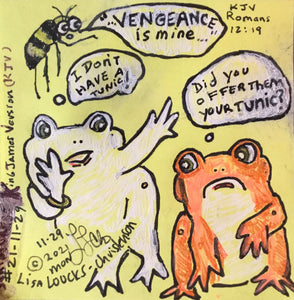 "VENGEANCE
is mine..."
KJV
Romans
12:19
I DON'T
HAVE A
TUNIC!
Did you
OFFER THEM
YOUR TUNIC?
11-29-
© 2021
mon
LISA LOUCKS-Christenson
#21-11-29
King James Version (KJV)